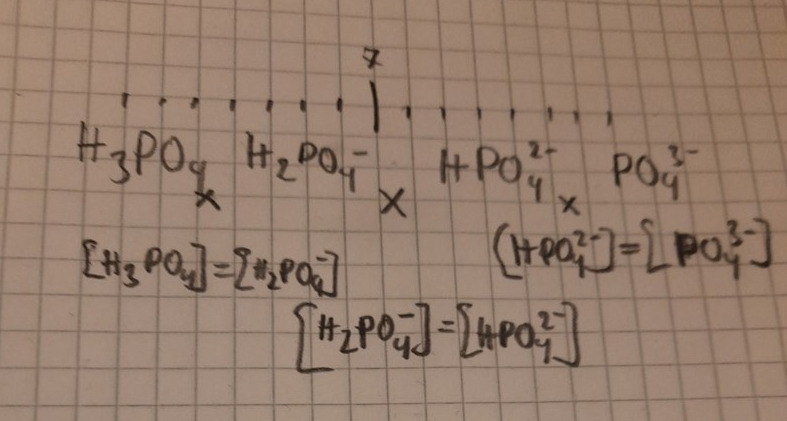 7
H₃PO₄ H₂PO₄⁻ HPO₄²⁻ PO₄³⁻
x x x
[H₃PO₄]=[H₂PO₄⁻] [HPO₄²⁻]=[PO₄³⁻]
[H₂PO₄⁻]=[HPO₄²⁻]